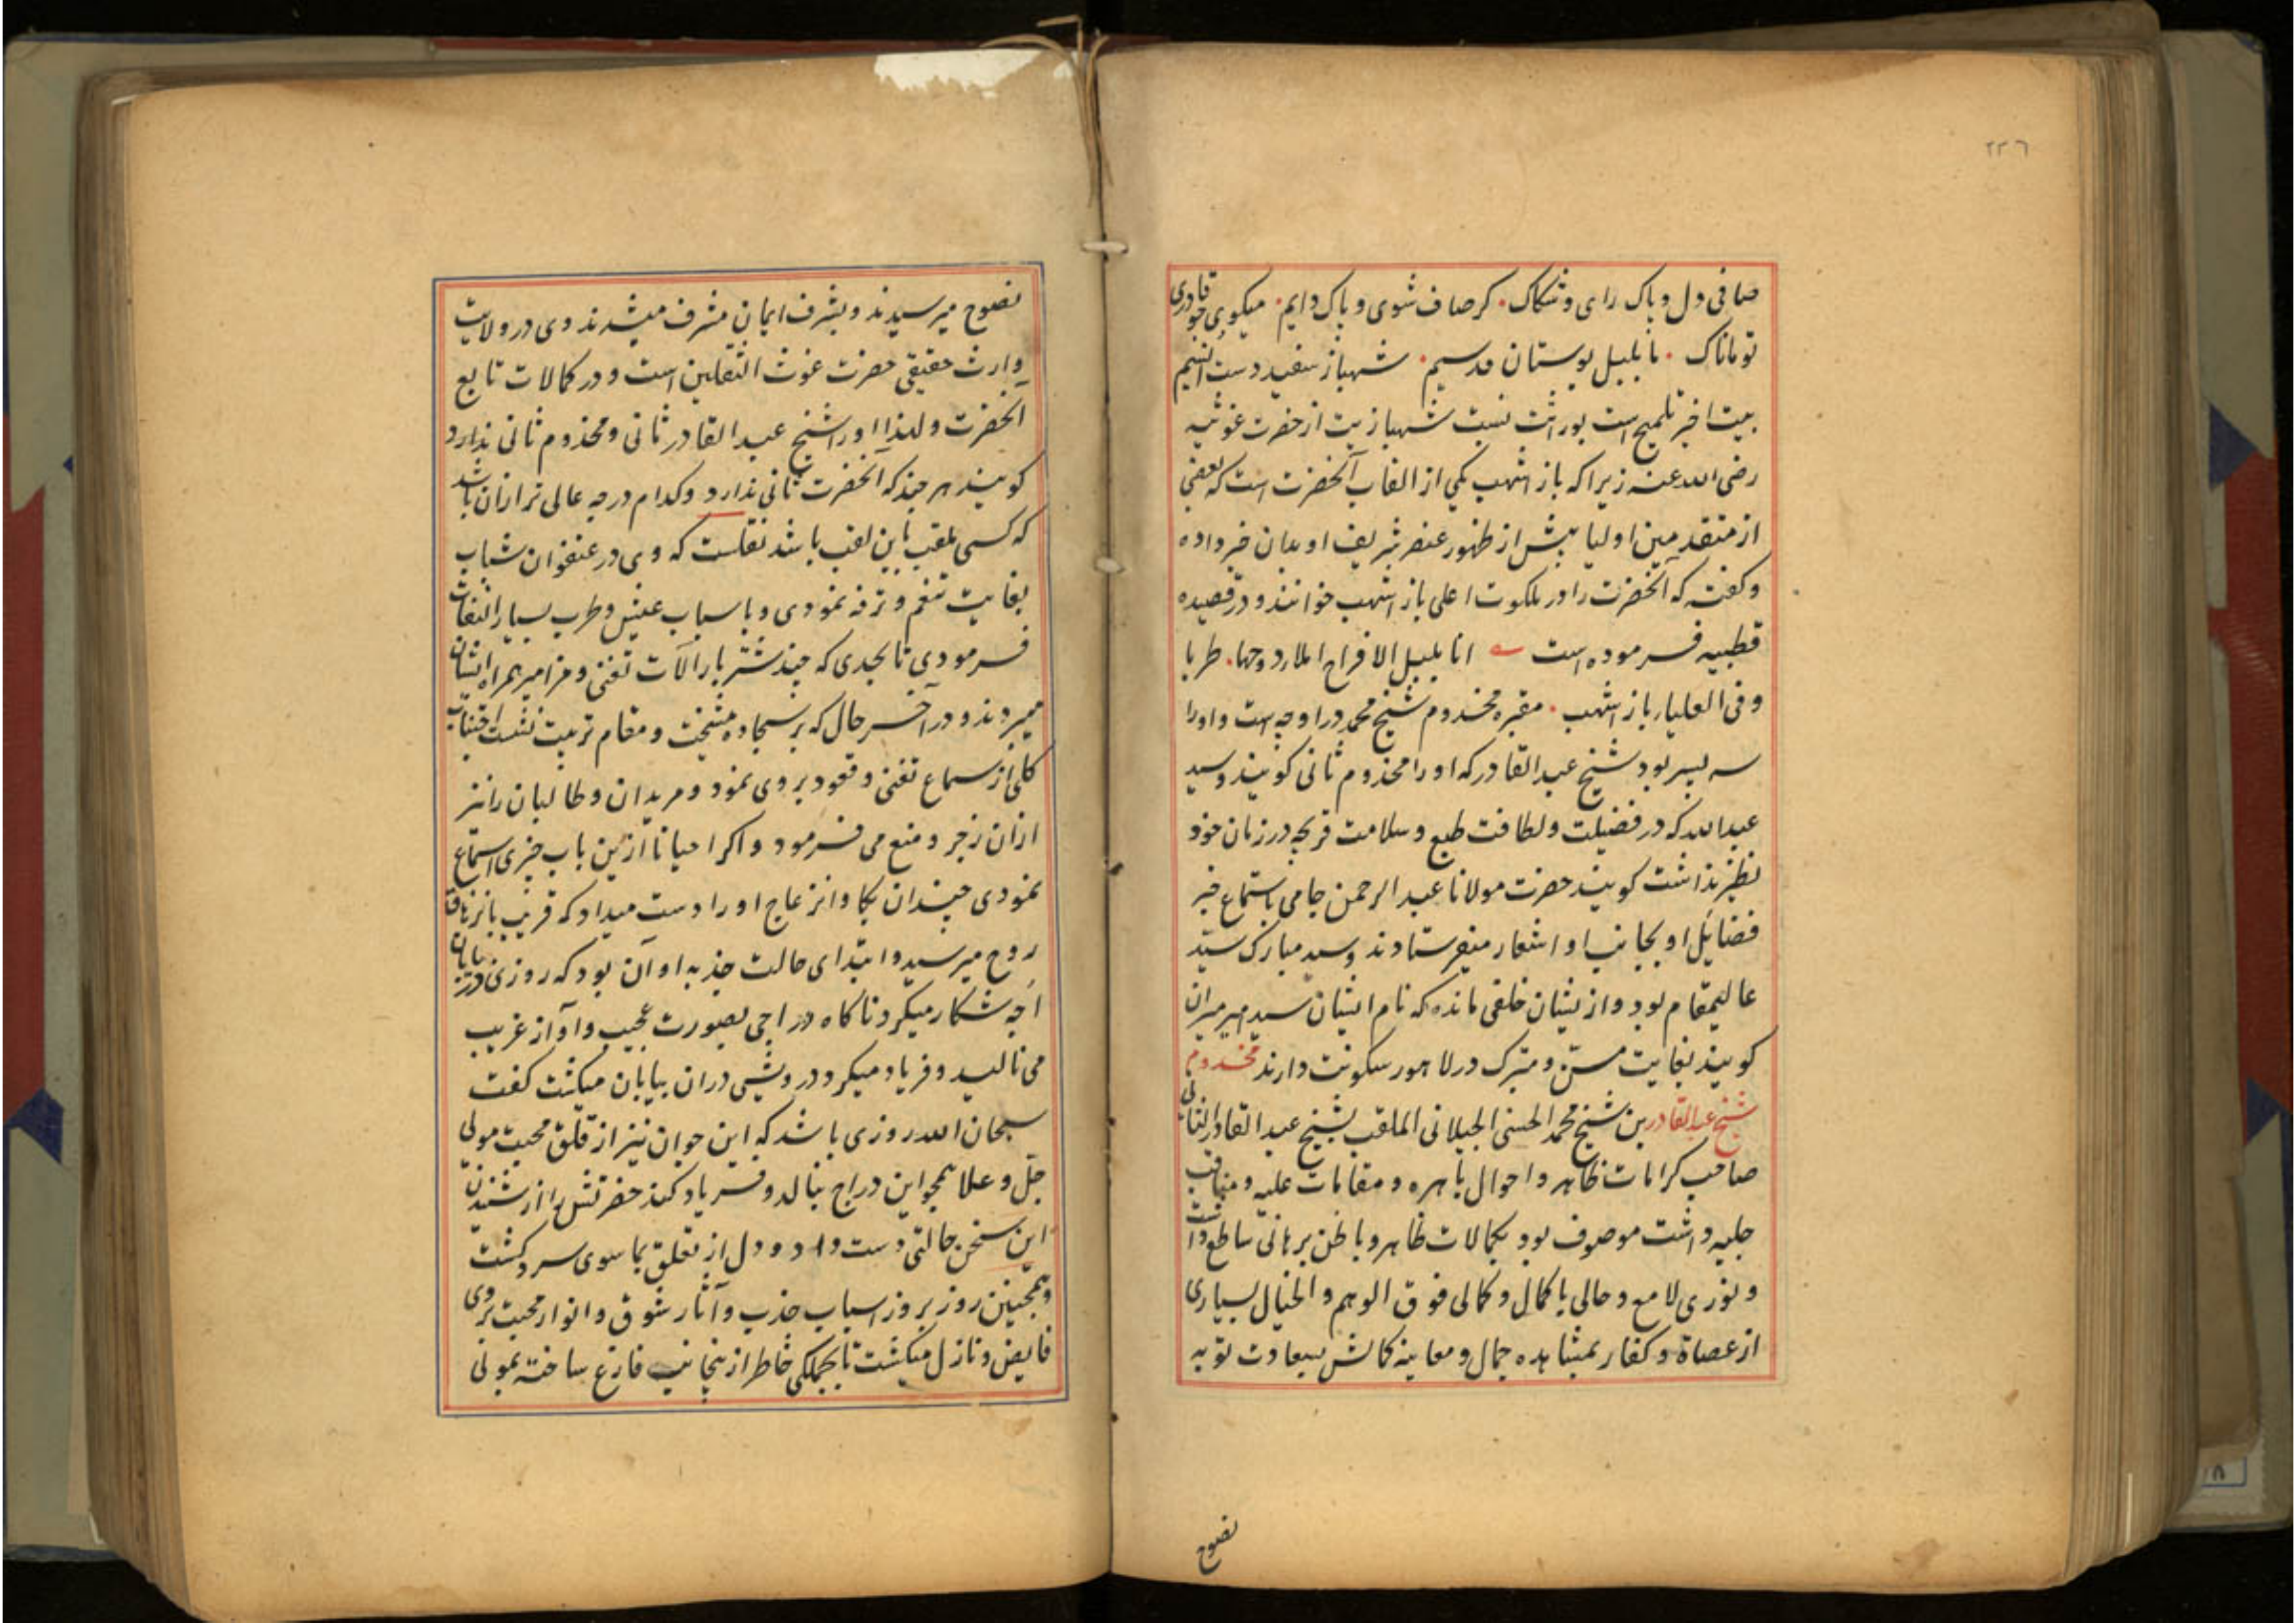 ٢٢٦
صافی دل و پاک رای و شکاک . کر صاف شوی و پاک دایم . میکوی چو قادری
توماناک . ما بلبل بوستان قدسیم . شهباز سفید دست انسیم
بیت اخیر تلمیح است بوراثت نسبت شهبازیت از حضرت غوثیه
رضی الله عنه زیرا که باز اشهب یکی از القاب آنحضرت است که بعضی
از متقدمین اولیا پیش از ظهور عنصر شریف او بدان خبر داده
و کفته که آنحضرت را در ملکوت اعلی باز اشهب خوانند و در قصیده
قطبیه فرموده است انا بلبل الافراح املا دوحها . طربا
وفی العلیاء باز اشهب . مقبره مخدوم شیخ محمد در اوچه است و او را
سه پسر بود شیخ عبد القادر که او را مخدوم ثانی کویند و سید
عبدالله که در فضیلت و لطافت طبع و سلامت قریحه در زمان خود
نظیر نداشت کویند حضرت مولانا عبد الرحمن جامی باستماع خبر
فضایل او بجانب او اشعار میفرستادند و سید مبارک سید
عالیمقام بود و از یشان خلفی مانده که نام ایشان سید میر میران
کویند بغایت مسن و متبرک در لاهور سکونت دارند مخدوم
شیخ عبد القادر بن شیخ محمد الحسنی الجیلانی الملقب بشیخ عبد القادر الثانی
صاحب کرامات ظاهر و احوال باهره و مقامات علیه و مناقب
جلیه داشت موصوف بود بکمالات ظاهر و باطن برهانی ساطع داشت
و نوری لامع و حالی با کمال و کمالی فوق الوهم و الخیال بسیاری
از عصاة و کفار بمشاهده جمال و معاینه کمالش بسعادت توبه
نصوح
نصوح میرسیدند و بشرف ایمان مشرف میشدند وی در ولایت
وارث حقیقی حضرت غوث الثقلین است و در کمالات تابع
آنحضرت و لهذا او را شیخ عبد القادر ثانی و مخدوم ثانی ندارد
کویند هر چند که آنحضرت ثانی ندارد و کدام درجه عالی تر ازان باشد
که کسی ملقب باین لقب باشد نقلست که وی در عنفوان شباب
بغایت تنعم و ترفه نمودی و باسباب عیش و طرب بسیار التفات
فرمودی تا بحدی که چند شتر بار آلات تغنی و مزامیر همراه ایشان
میبردند و در آخر حال که بر سجاده مشیخت و مقام تربیت نشست اجتناب
کلی از سماع تغنی و قعود بروی نمود و مریدان و طالبان را نیز
ازان زجر و منع می فرمود و اکر احیانا ازین باب چیزی استماع
نمودی چندان بکا و انزعاج او را دست میداد که قریب بانزهاق
روح میرسید و ابتدای حالت جذبه او آن بود که روزی در بیابان
اچه شکار میکرد ناکاه دراجی بصورت عجیب و آواز غریب
می نالید و فریاد میکرد درویشی دران بیابان میکشت کفت
سبحان الله روزی باشد که این جوان نیز از قلق محبت مولی
جل و علا همچو این دراج بنالد و فریاد کند حضرتش را از شنیدن
این سخن حالتی دست داد و دل از تعلق بما سوی سرد کشت
و همچنین روز بروز اسباب جذب و آثار شوق و انوار محبت بروی
فایض و نازل میکشت تا بجملکی خاطر از ینجانب فارغ ساخته بمولی